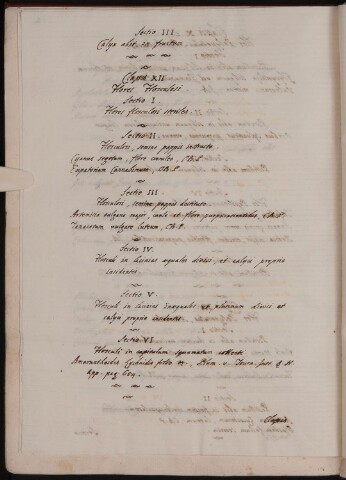 Sectio III
Calyx abit in fructum
Classis XII
Flores Flosculosi
Sectio I.
Flores flosculosi steriles.
Sectio II.
Flosculosi, semine pappis instructo
Cyanus segetum, flore cæruleo, C.B.P.
Eupatorium Cannabinum, C.B.P.
Sectio III
Flosculosi, semine pappis destituto
Artemisia vulgaris major, caule et flore purpurascentibus, C.B.P.
Tanacetum vulgare luteum, C.B.P.
Sectio IV.
Flosculi in lacinias æquales divisi, et calyci proprio
insidentes
Sectio V.
Flosculi in lacinias inæquales et plurimum divisi et
calyci proprio insidentes
Sectio VI
Flosculi in capitulum squamatum collecti
Amaranthoides Lychnidis folio &c., Plum. Tourn. Inst. R. H.
App. pag. 654.
Classis